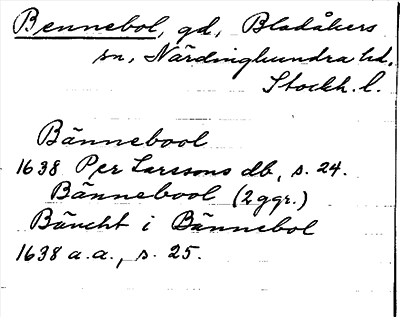 Bennebol, gd, Bladåkers
sn, Närdinghundra hd,
Stockh. l.
Bännebool
1638 Per Larssons db, s. 24.
Bännebool (2 ggr.)
Bäncht i Bännebol
1638 a.a., s. 25.